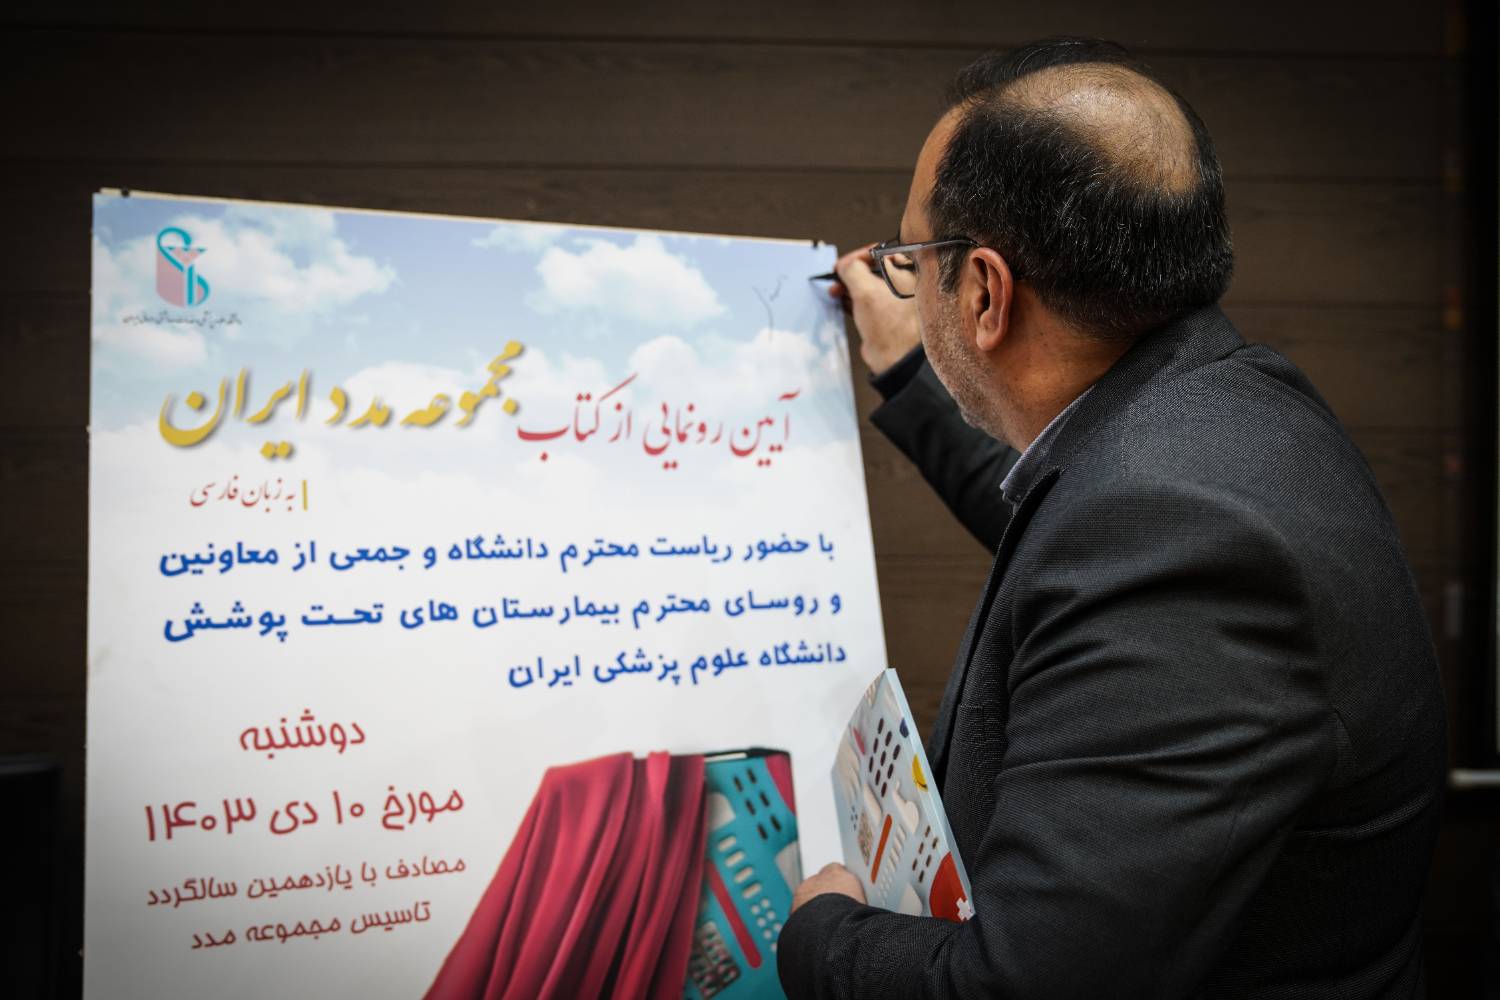 آیین رونمایی از کتاب مجموعه مدد ایران
به زبان فارسی
با حضور ریاست محترم دانشگاه و جمعی از معاونین
و روسای محترم بیمارستان های تحت پوشش
دانشگاه علوم پزشکی ایران
دوشنبه
مورخ ۱۰ دی ۱۴۰۳
مصادف با یازدهمین سالگردد
تاسیس مجموعه مدد